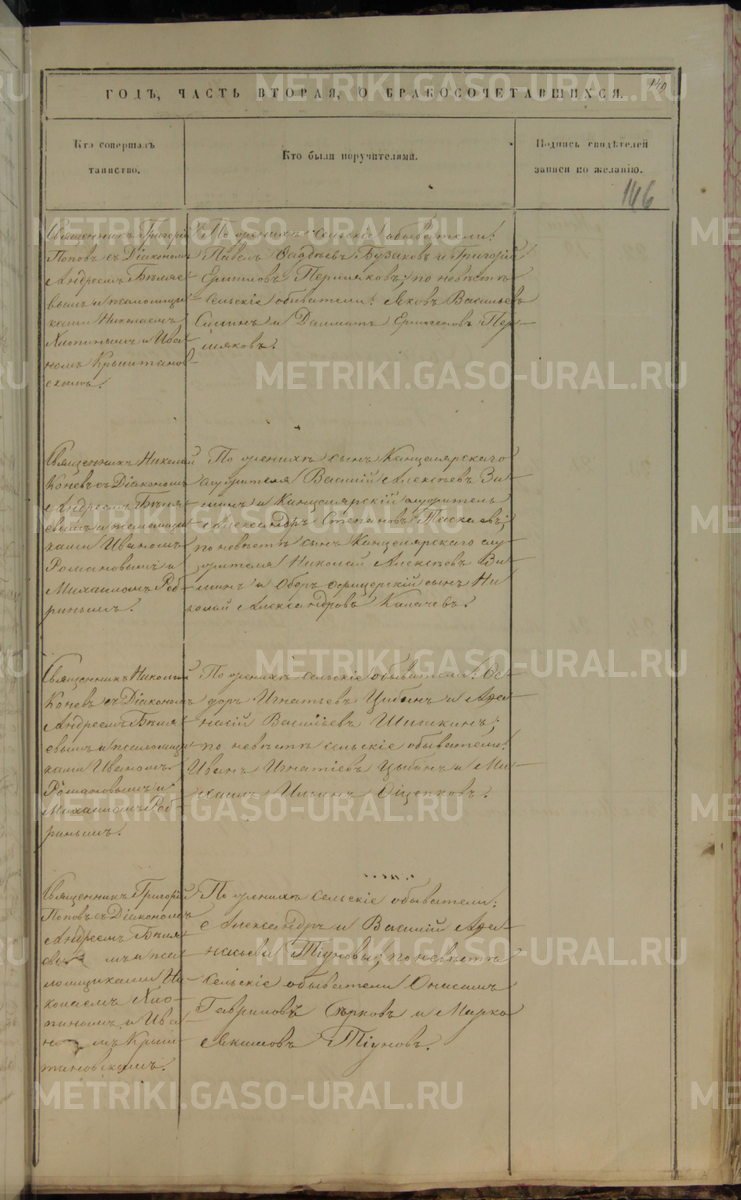 140
ГОДЪ, ЧАСТЬ ВТОРАЯ, О БРАКОСОЧЕТАВШИХСЯ.
Кто совершалъ
таинство.
Кто были поручителями.
Подпись свидѣтелей
записи по желанію.
146
Священникъ Григорій
Поповъ съ Діакономъ
Андреемъ Бѣляе-
вымъ и псаломщи-
ками Николаемъ
и Ива-
номъ
По женихѣ сельскіе обыватели:
Павелъ Бузаковъ и Григорій
Пермяковъ; по невѣстѣ
сельскіе обыватели: Яковъ Васильевъ
и Ермиловъ Пер-
мяковъ.
Священникъ Николай
Коневъ съ Діакономъ
Андреемъ Бѣля-
евымъ и псаломщи-
ками Иваномъ
Романовымъ и
Михаиломъ
По женихѣ сынъ Канцелярскаго
служителя Василій Алексѣевъ Зи-
минъ и Канцелярскій служитель
Александръ Степановъ
по невѣстѣ сынъ Канцелярскаго слу-
жителя Николай Алексѣевъ Зи-
минъ и Оберъ Офицерскій сынъ Ни-
колай Александровъ Калачевъ.
Священникъ Николай
Коневъ съ Діакономъ
Андреемъ Бѣля-
евымъ и псаломщи-
ками Иваномъ
Романовымъ и
Михаиломъ
По женихѣ сельскіе обыватели: Ѳе-
доръ Игнатьевъ Цыбинъ и Аѳа-
насій Васильевъ Шишкинъ;
по невѣстѣ сельскіе обыватели:
Иванъ Игнатіевъ Цыбинъ и Ми-
хаилъ
Священникъ Григорій
Поповъ съ Діакономъ
Андреемъ Бѣля-
евымъ и пса-
ломщиками Ни-
колаемъ
и Ива-
номъ
По женихѣ сельскіе обыватели:
Александръ и Василій Аѳа-
насьевы Тіуновы; по невѣстѣ
сельскіе обыватели
Гавриловъ и Марко
Якимовъ Тіуновъ.
METRIKI.GASO-URAL.RU